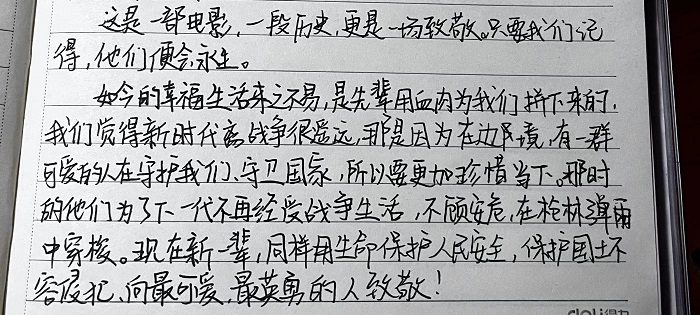 这是一部电影，一段历史，更是一场致敬。只要我们记
得，他们便会永生。
如今的幸福生活来之不易，是先辈用血肉为我们拼下来的，
我们觉得新时代离战争很遥远，那是因为在边境，有一群
可爱的人在守护我们、守卫国家，所以要更加珍惜当下。那时
的他们为了下一代不再经受战争生活，不顾安危，在枪林弹雨
中穿梭。现在新一辈，同样用生命保护人民安全，保护国土不
容侵犯，向最可爱，最英勇的人致敬！
deli得力